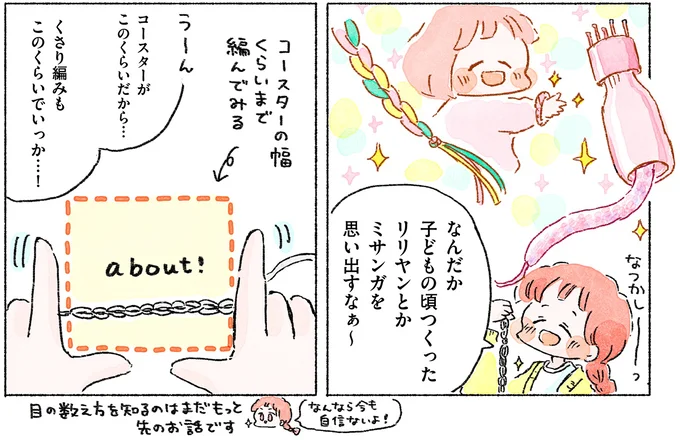 なんだか
子どもの頃つくった
リリヤンとか
ミサンガを
思い出すなぁ〜
なつかし――っ
コースターの幅
くらいまで
編んでみる
う〜ん
コースターが
このくらいだから…
くさり編みも
このくらいでいっか…！
about!
目の数え方を知るのはまだもっと
先のお話です
なんなら今も
自信ないよ！